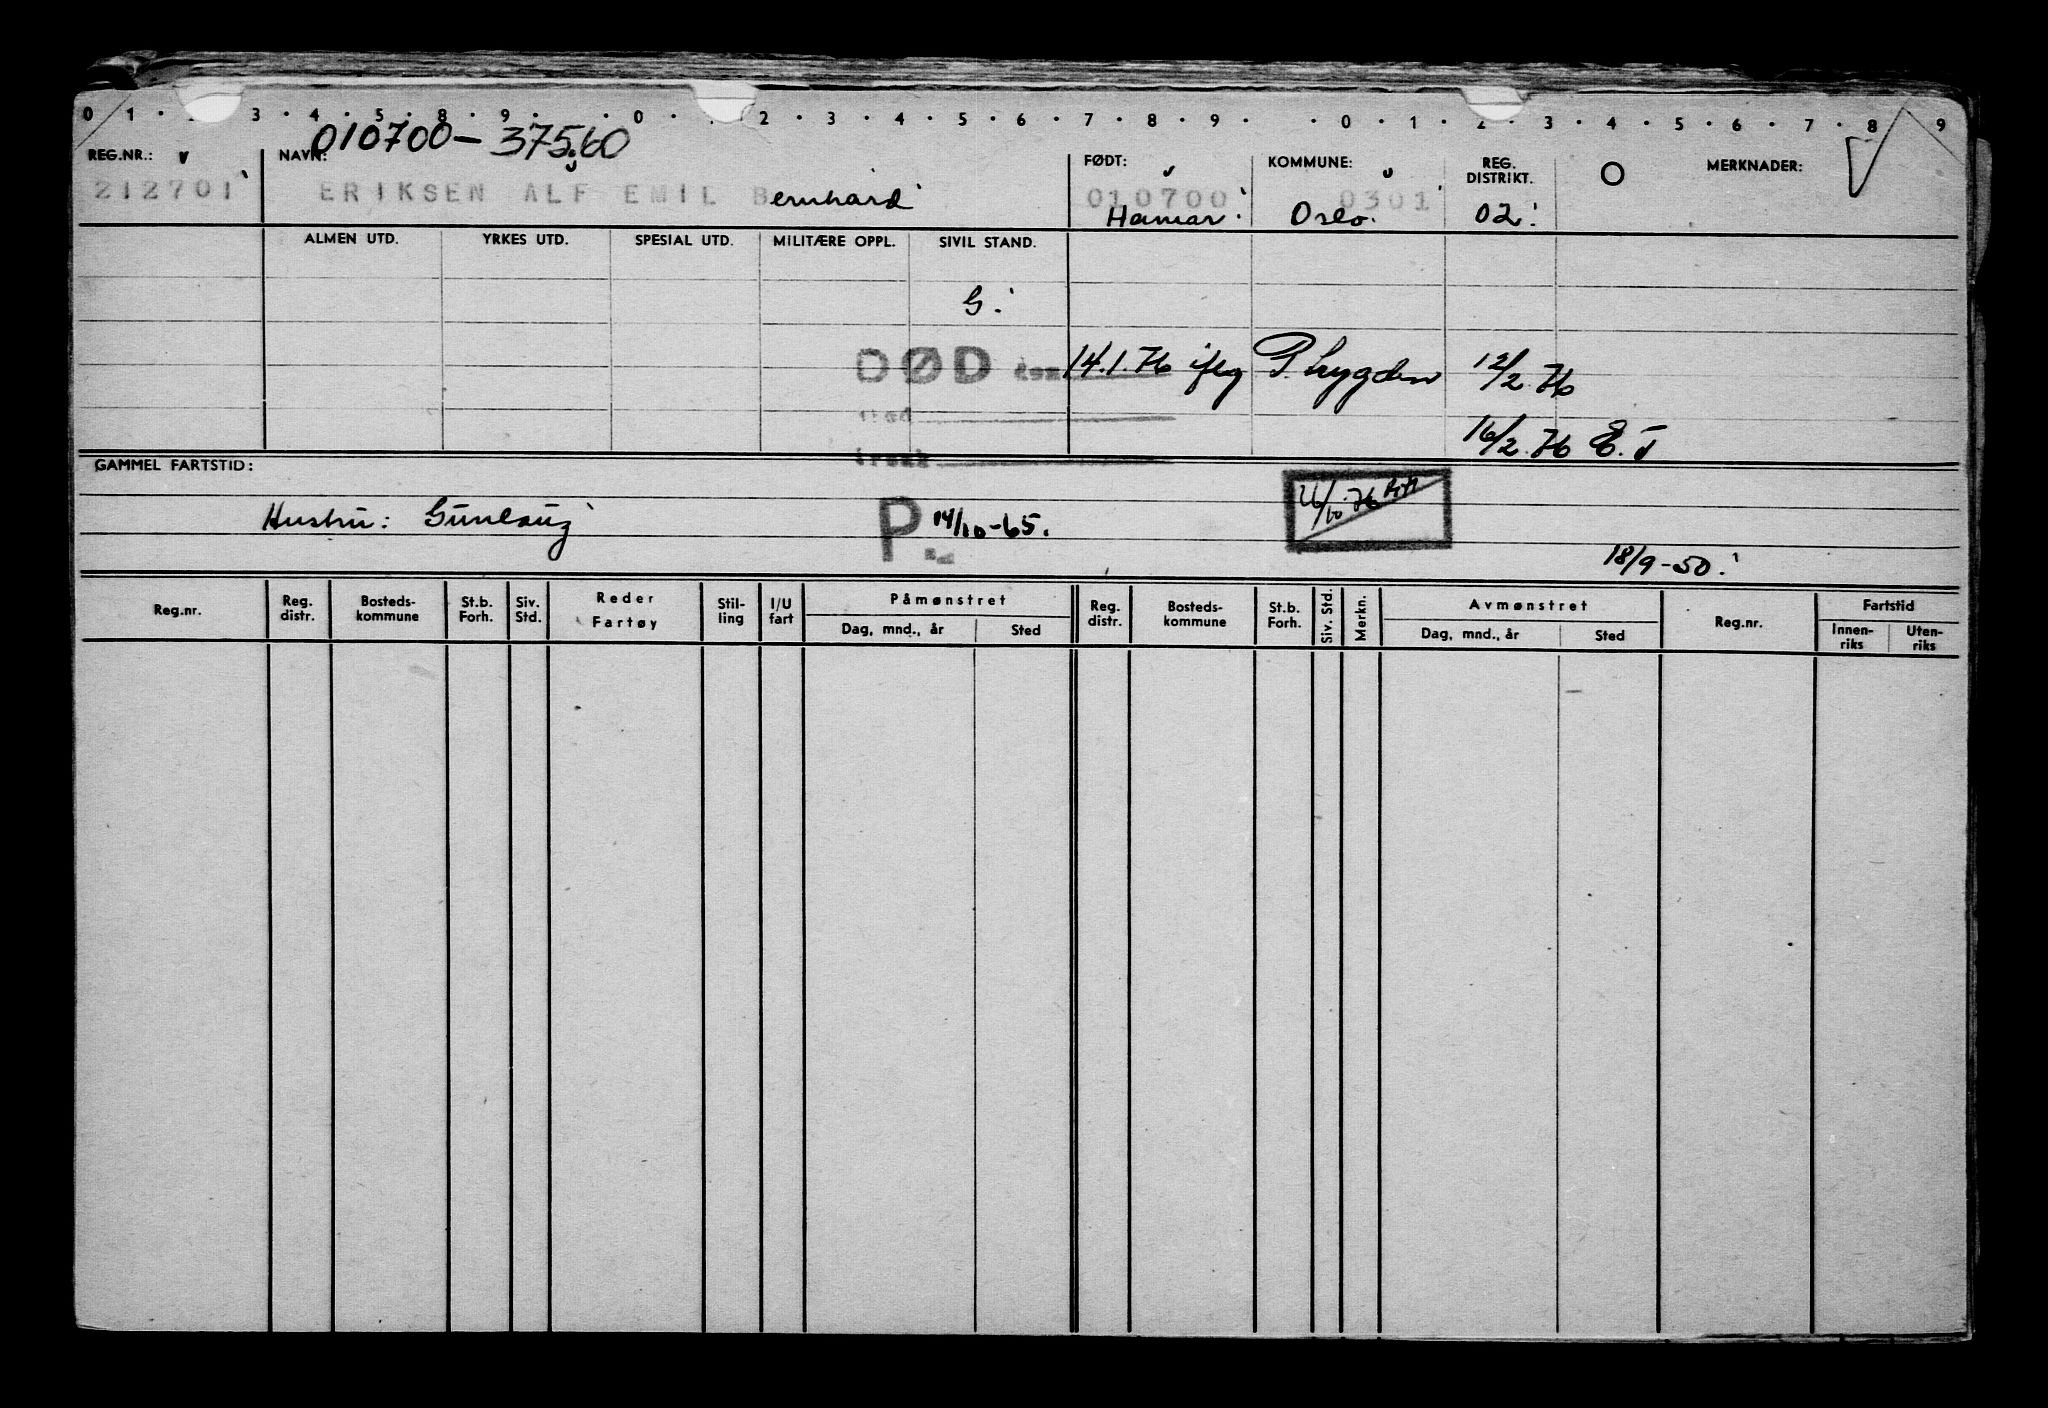 0 1 · · 3 · 4 · 5 · 8 · 9 · · 0 · · 2 · 3 · 4 · 5 · 6 · 7 · 8 · 9 · · 0 · 1 · 2 · 3 · 4 · 5 · 6 · 7 · 8 9
010700-37560
REG.NR.: NAVN: FØDT: KOMMUNE: REG. DISTRIKT. O MERKNADER:
212701 ERIKSEN ALF EMIL Bernhard 010700 0301
Hamar Oslo. 02
ALMEN UTD. YRKES UTD. SPESIAL UTD. MILITÆRE OPPL. SIVIL STAND.
G.
DØD den 14.1.76 iflg P. trygden 12/2.76
sted
16/2.76 E.T
årsak
GAMMEL FARTSTID:
Hustru: Gunlaug P. 14/10-65. 26/10.76
18/9-50.
Reg.nr. Reg. distr. Bosteds-kommune St.b. Forh. Siv. Std. Reder Fartøy Stil-ling I/U fart Påmønstret Dag, mnd., år Sted Reg. distr. Bosteds-kommune St.b. Forh. Siv. Std. Merkn. Avmønstret Dag, mnd., år Sted Reg.nr. Fartstid Innen-riks Uten-riks